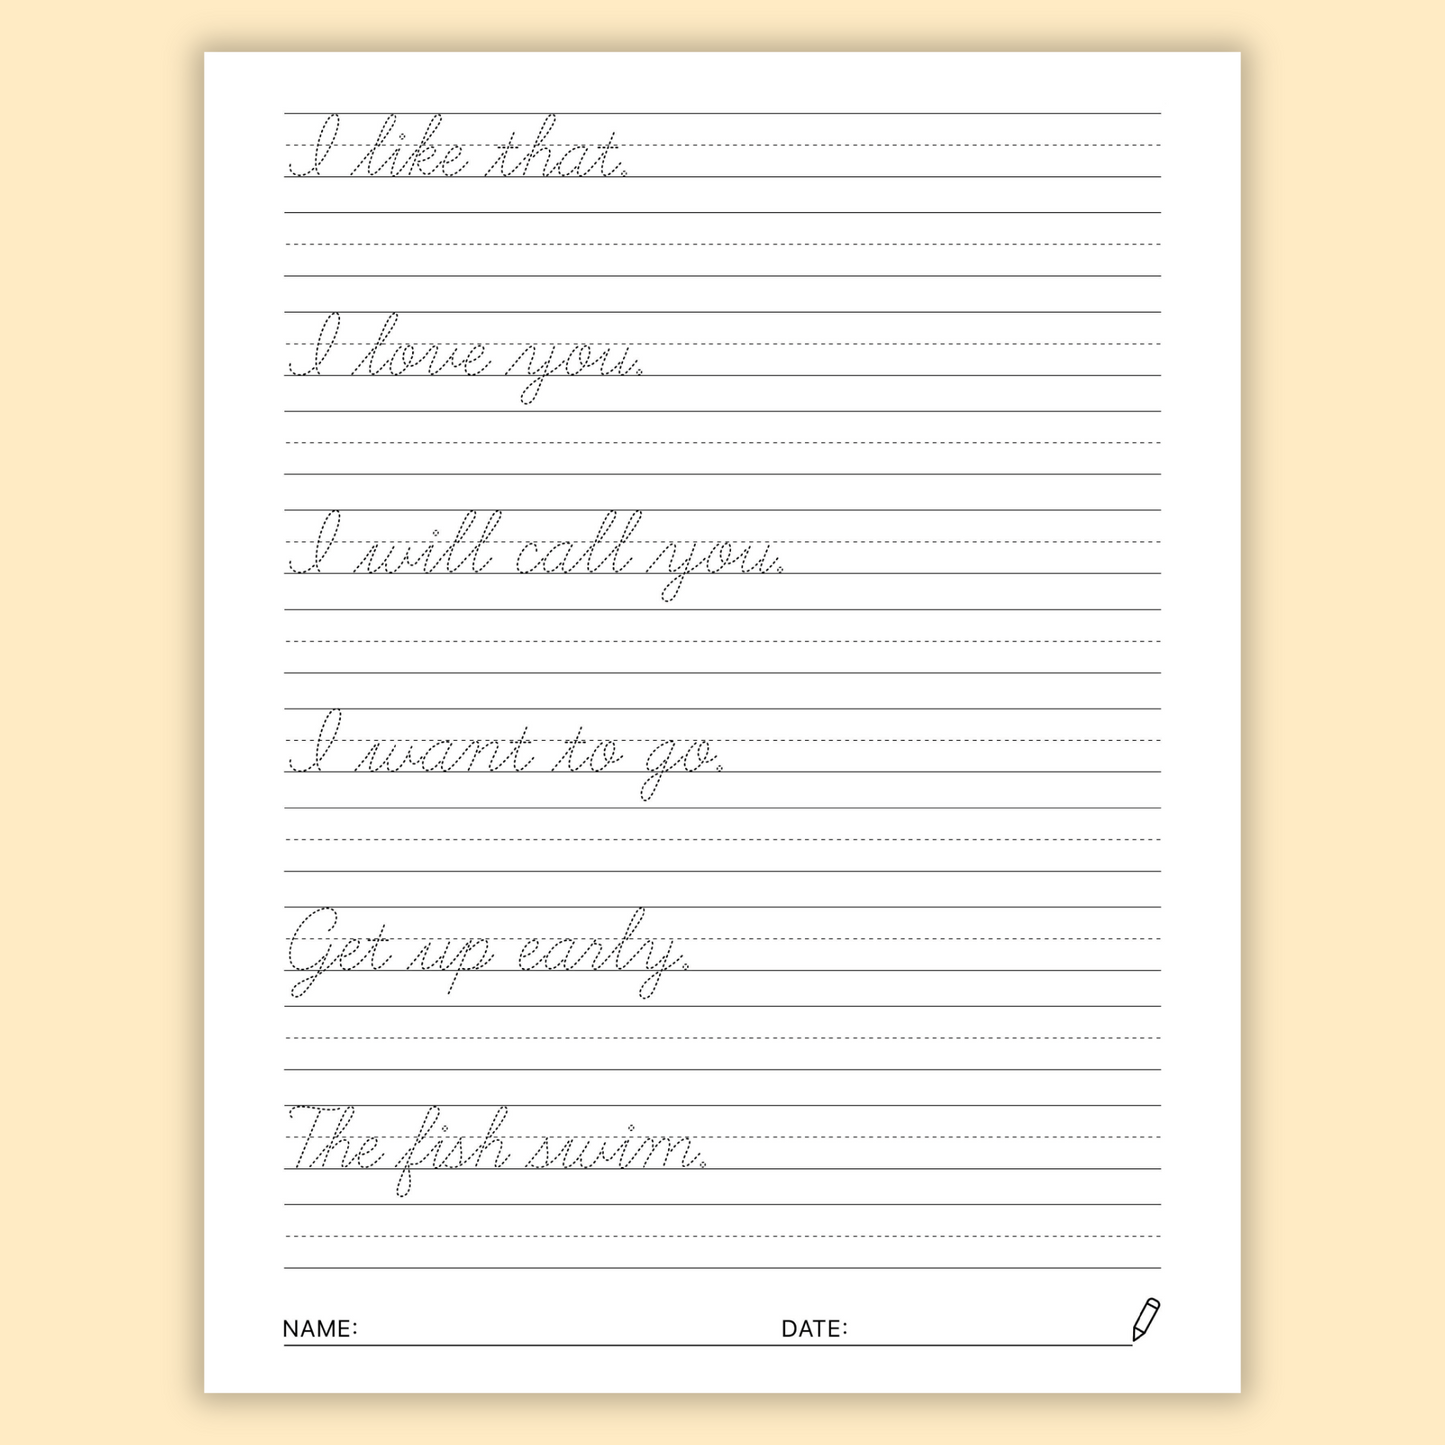 I like that.
I love you.
I will call you.
I want to go.
Get up early.
The fish swim.
NAME: DATE: